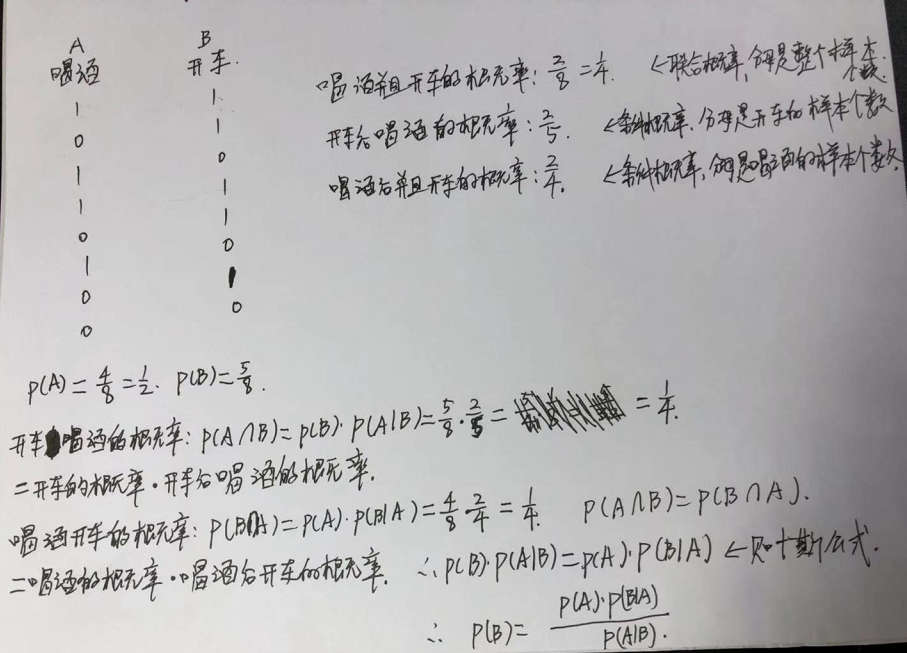 A B
喝酒 开车.
1 1
0 1
1 0
1 1
0 1
1 0
0 1
0 0
喝酒并且开车的概率: 2/8 = 1/4. ←联合概率, 分母是整个样本个数.
开车后喝酒的概率: 2/5. ←条件概率, 分母是开车的样本个数
喝酒后并且开车的概率: 2/4. ←条件概率, 分母是喝酒的样本个数.
P(A) = 4/8 = 1/2. P(B) = 5/8.
开车喝酒的概率: P(A∩B) = P(B)·P(A|B) = 5/8 · 2/5 = = 1/4.
=开车的概率·开车后喝酒的概率.
喝酒开车的概率: P(B∩A) = P(A)·P(B|A) = 4/8 · 2/4 = 1/4. P(A∩B) = P(B∩A).
=喝酒的概率·喝酒后开车的概率. ∴ P(B)·P(A|B) = P(A)·P(B|A) ←贝叶斯公式.
∴ P(B) = P(A)·P(B|A) / P(A|B).